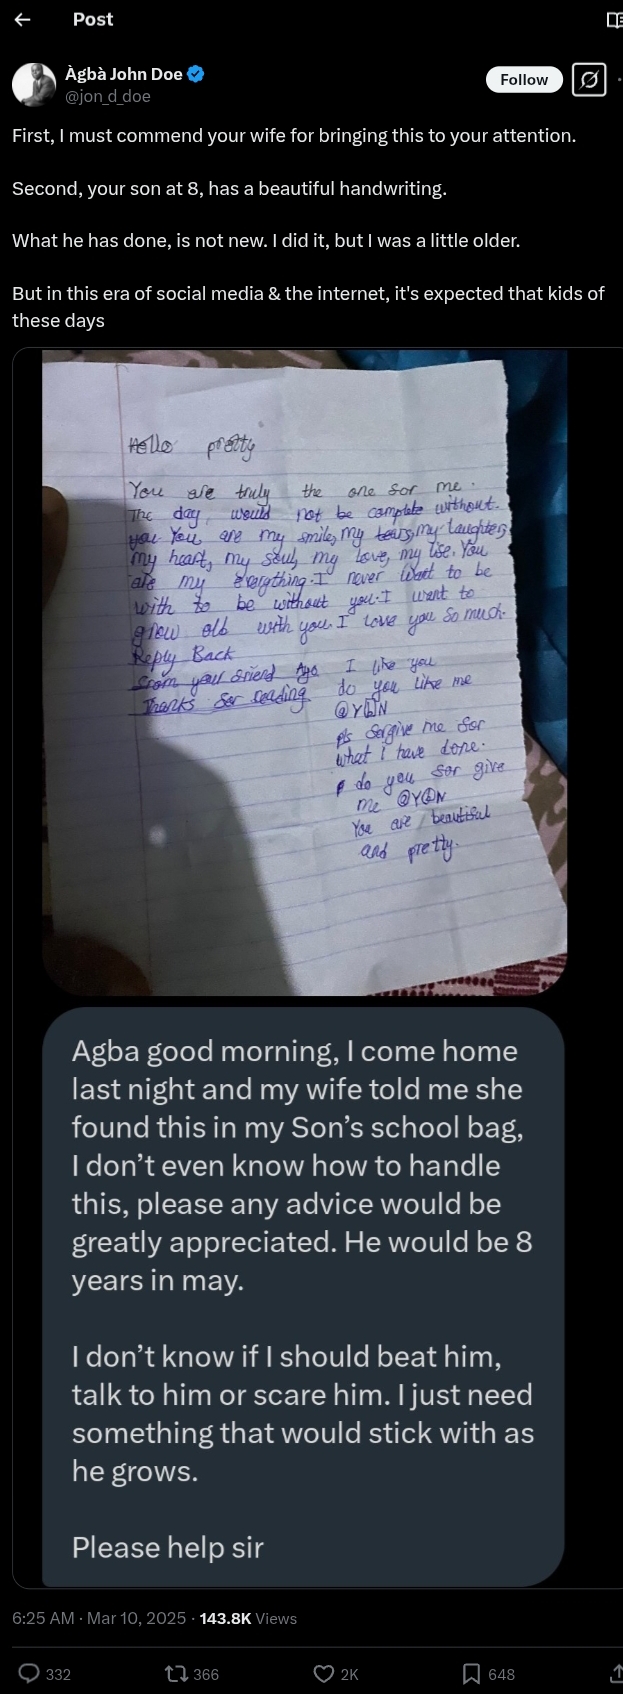 Post
Àgbà John Doe
@jon_d_doe
Follow
First, I must commend your wife for bringing this to your attention.
Second, your son at 8, has a beautiful handwriting.
What he has done, is not new. I did it, but I was a little older.
But in this era of social media & the internet, it's expected that kids of
these days
Hello pretty
You are truly the one for me.
The day would not be complete without.
you You are my smile, my tears, my laughter,
my heart, my soul, my love, my life. You
are my everything. I never want to be
with to be without you. I want to
grow old with you. I love you so much.
Reply Back
from your friend
Thanks for reading
I like you
do you like me
@Y N
pls forgive me for
what I have done.
do you for give
me @Y N
You are beautiful
and pretty.
Agba good morning, I come home
last night and my wife told me she
found this in my Son’s school bag,
I don’t even know how to handle
this, please any advice would be
greatly appreciated. He would be 8
years in may.
I don’t know if I should beat him,
talk to him or scare him. I just need
something that would stick with as
he grows.
Please help sir
6:25 AM · Mar 10, 2025 · 143.8K Views
332
366
2K
648